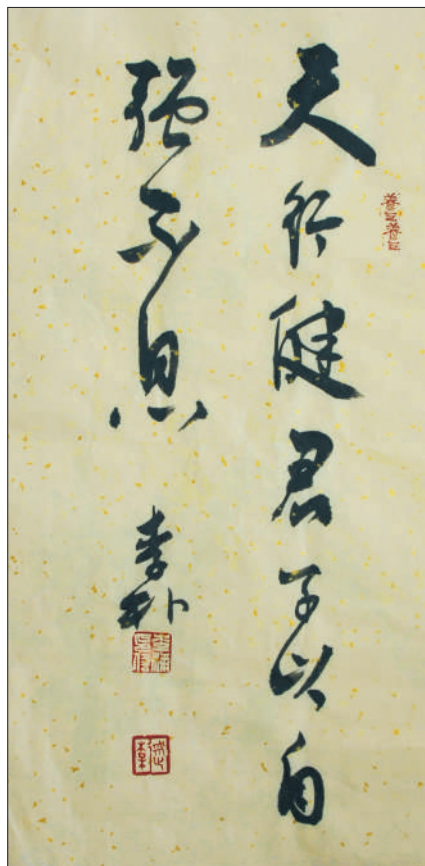 天行健君子以自
强不息
李朴